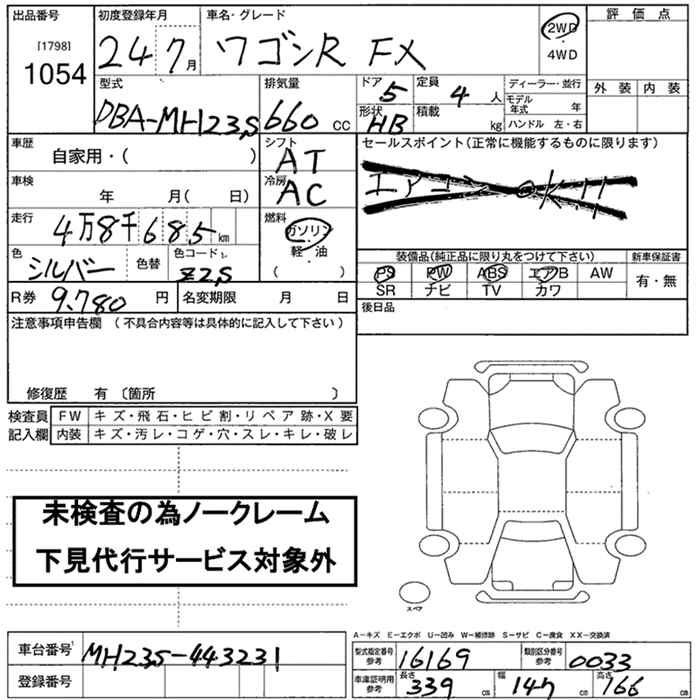 出品番号 初度登録年月 車名・グレード 評価点
[1798] 1054 24 7月 ワゴンR FX 2WD・4WD
型式 排気量 ドア 5 定員 4人 ディーラー・並行 外装 内装
DBA-MH23S 660 CC 形状 HB 積載 kg モデル年式 年
ハンドル 左・右
車歴 シフト セールスポイント(正常に機能するものに限ります)
自家用・( ) AT
車検 冷房 エアコンOK!!
年 月( 日) AC
走行 燃料
4万8千685km ガソリン・軽・油
色 色替 色コード 装備品(純正品に限り丸をつけて下さい) 新車保証書
シルバー Z2S ( ) PS PW ABS エアB AW 有・無
SR ナビ TV カワ
R券 9,780円 名変期限 月 日 後日品
注意事項申告欄 (不具合内容等は具体的に記入して下さい)
修復歴 有 〔箇所 〕
検査員 FW キズ・飛石・ヒビ割・リペア跡・X要
記入欄 内装 キズ・汚レ・コゲ・穴・スレ・キレ・破レ
未検査の為ノークレーム
下見代行サービス対象外
スペア
A−キズ E−エクボ U−凹み W−補修跡 S−サビ C−腐食 XX−交換済
車台番号 MH23S-443231 型式指定番号 参考 16169 類別区分番号 参考 0033
登録番号 車庫証明用 参考 長さ 339cm 幅 147cm 高さ 166cm